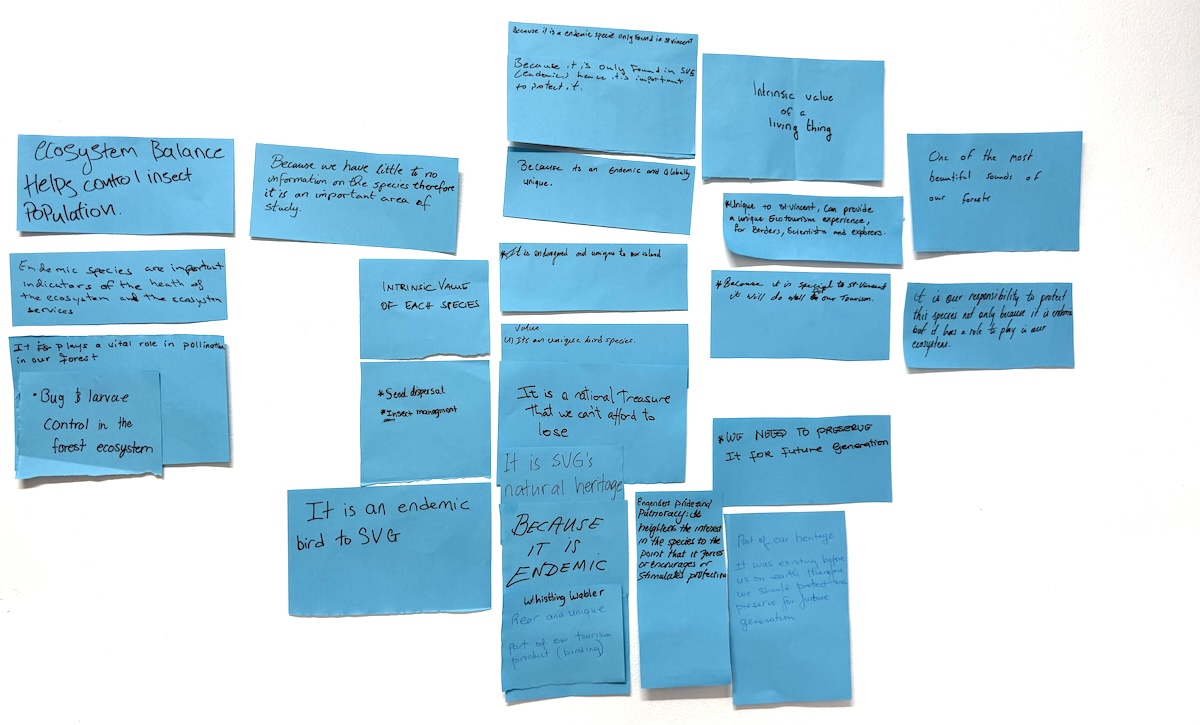 ecosystem Balance
Helps control insect
Population.
Endemic species are important
indicators of the heath of
the ecosystem and the ecosystem
services
It is plays a vital role in pollination
in our forest
• Bug & larvae
control in the
forest ecosystem
Because we have little to no
information on the species therefore
it is an important area of
study.
INTRINSIC VALUE
OF EACH SPECIES
* Seed dispersal
* Insect managment
It is an endemic
bird to SVG
Because it is a endemic specie only found in st vincent
Because it is only found in SVG
(endemic) hence it is important
to protect it.
Because its an Endemic and Globally
unique.
* It is endangered and unique to our island
Value
Its an unique bird species.
It is a national treasure
that we can't afford to
lose
It is SVG's
natural heritage
BECAUSE
IT IS
ENDEMIC
Whistling Wabler
Rear and unique
part of our tourism
product (birding)
Intrinsic value
of a
living thing
* Unique to St-Vincent, Can provide
a unique Ecotourism experience,
for Birders, Scientists and explorers.
* Because it is special to St-Vincent
it will do well for our Tourism.
* WE NEED TO PRESERVE
It FOR Future Generation
Engenders pride and
heightens the interest
in the species to the
point that it forces
or encourages or
stimulates protection
Part of our heritage
It was existing before
us on earth therefore
we should protect and
preserve for future
generation
One of the most
beautiful sounds of
our forests
It is our responsibility to protect
this species not only because it is endemic
but it has a role to play in our
ecosystem.